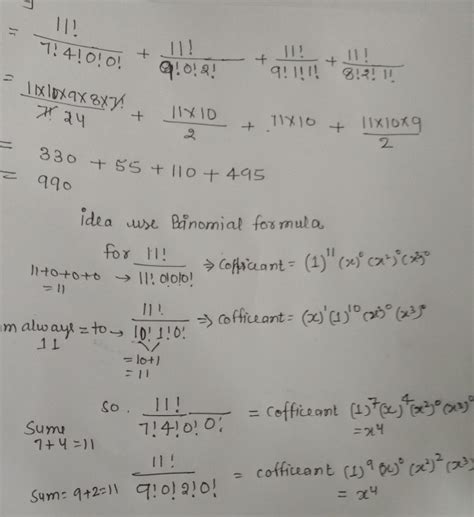 = 11!/7!4!0!0! + 11!/9!0!2! + 11!/9!1!1! + 11!/8!2!1!
= 11x10x9x8x7!/7! 24 + 11x10/2 + 11x10 + 11x10x9/2
= 330 + 55 + 110 + 495
= 990
idea use Binomial formula
for 11!/11!0!0!0! ⇒ cofficant = (1)^11 (x)^0 (x²)^0 (x³)^0
11+0+0+0 →
=11
m always = to → 11!/10!1!0! ⇒ cofficeant = (x)^1 (1)^10 (x²)^0 (x³)^0
11
=10+1
=11
so. 11!/7!4!0!0! = cofficeant (1)^7 (x)^4 (x²)^0 (x³)^0
Sume
7+4=11
= x⁴
Sum = 9+2=11 11!/9!0!2!0! = cofficeant (1)^9 (x)^0 (x²)^2 (x³)
= x⁴